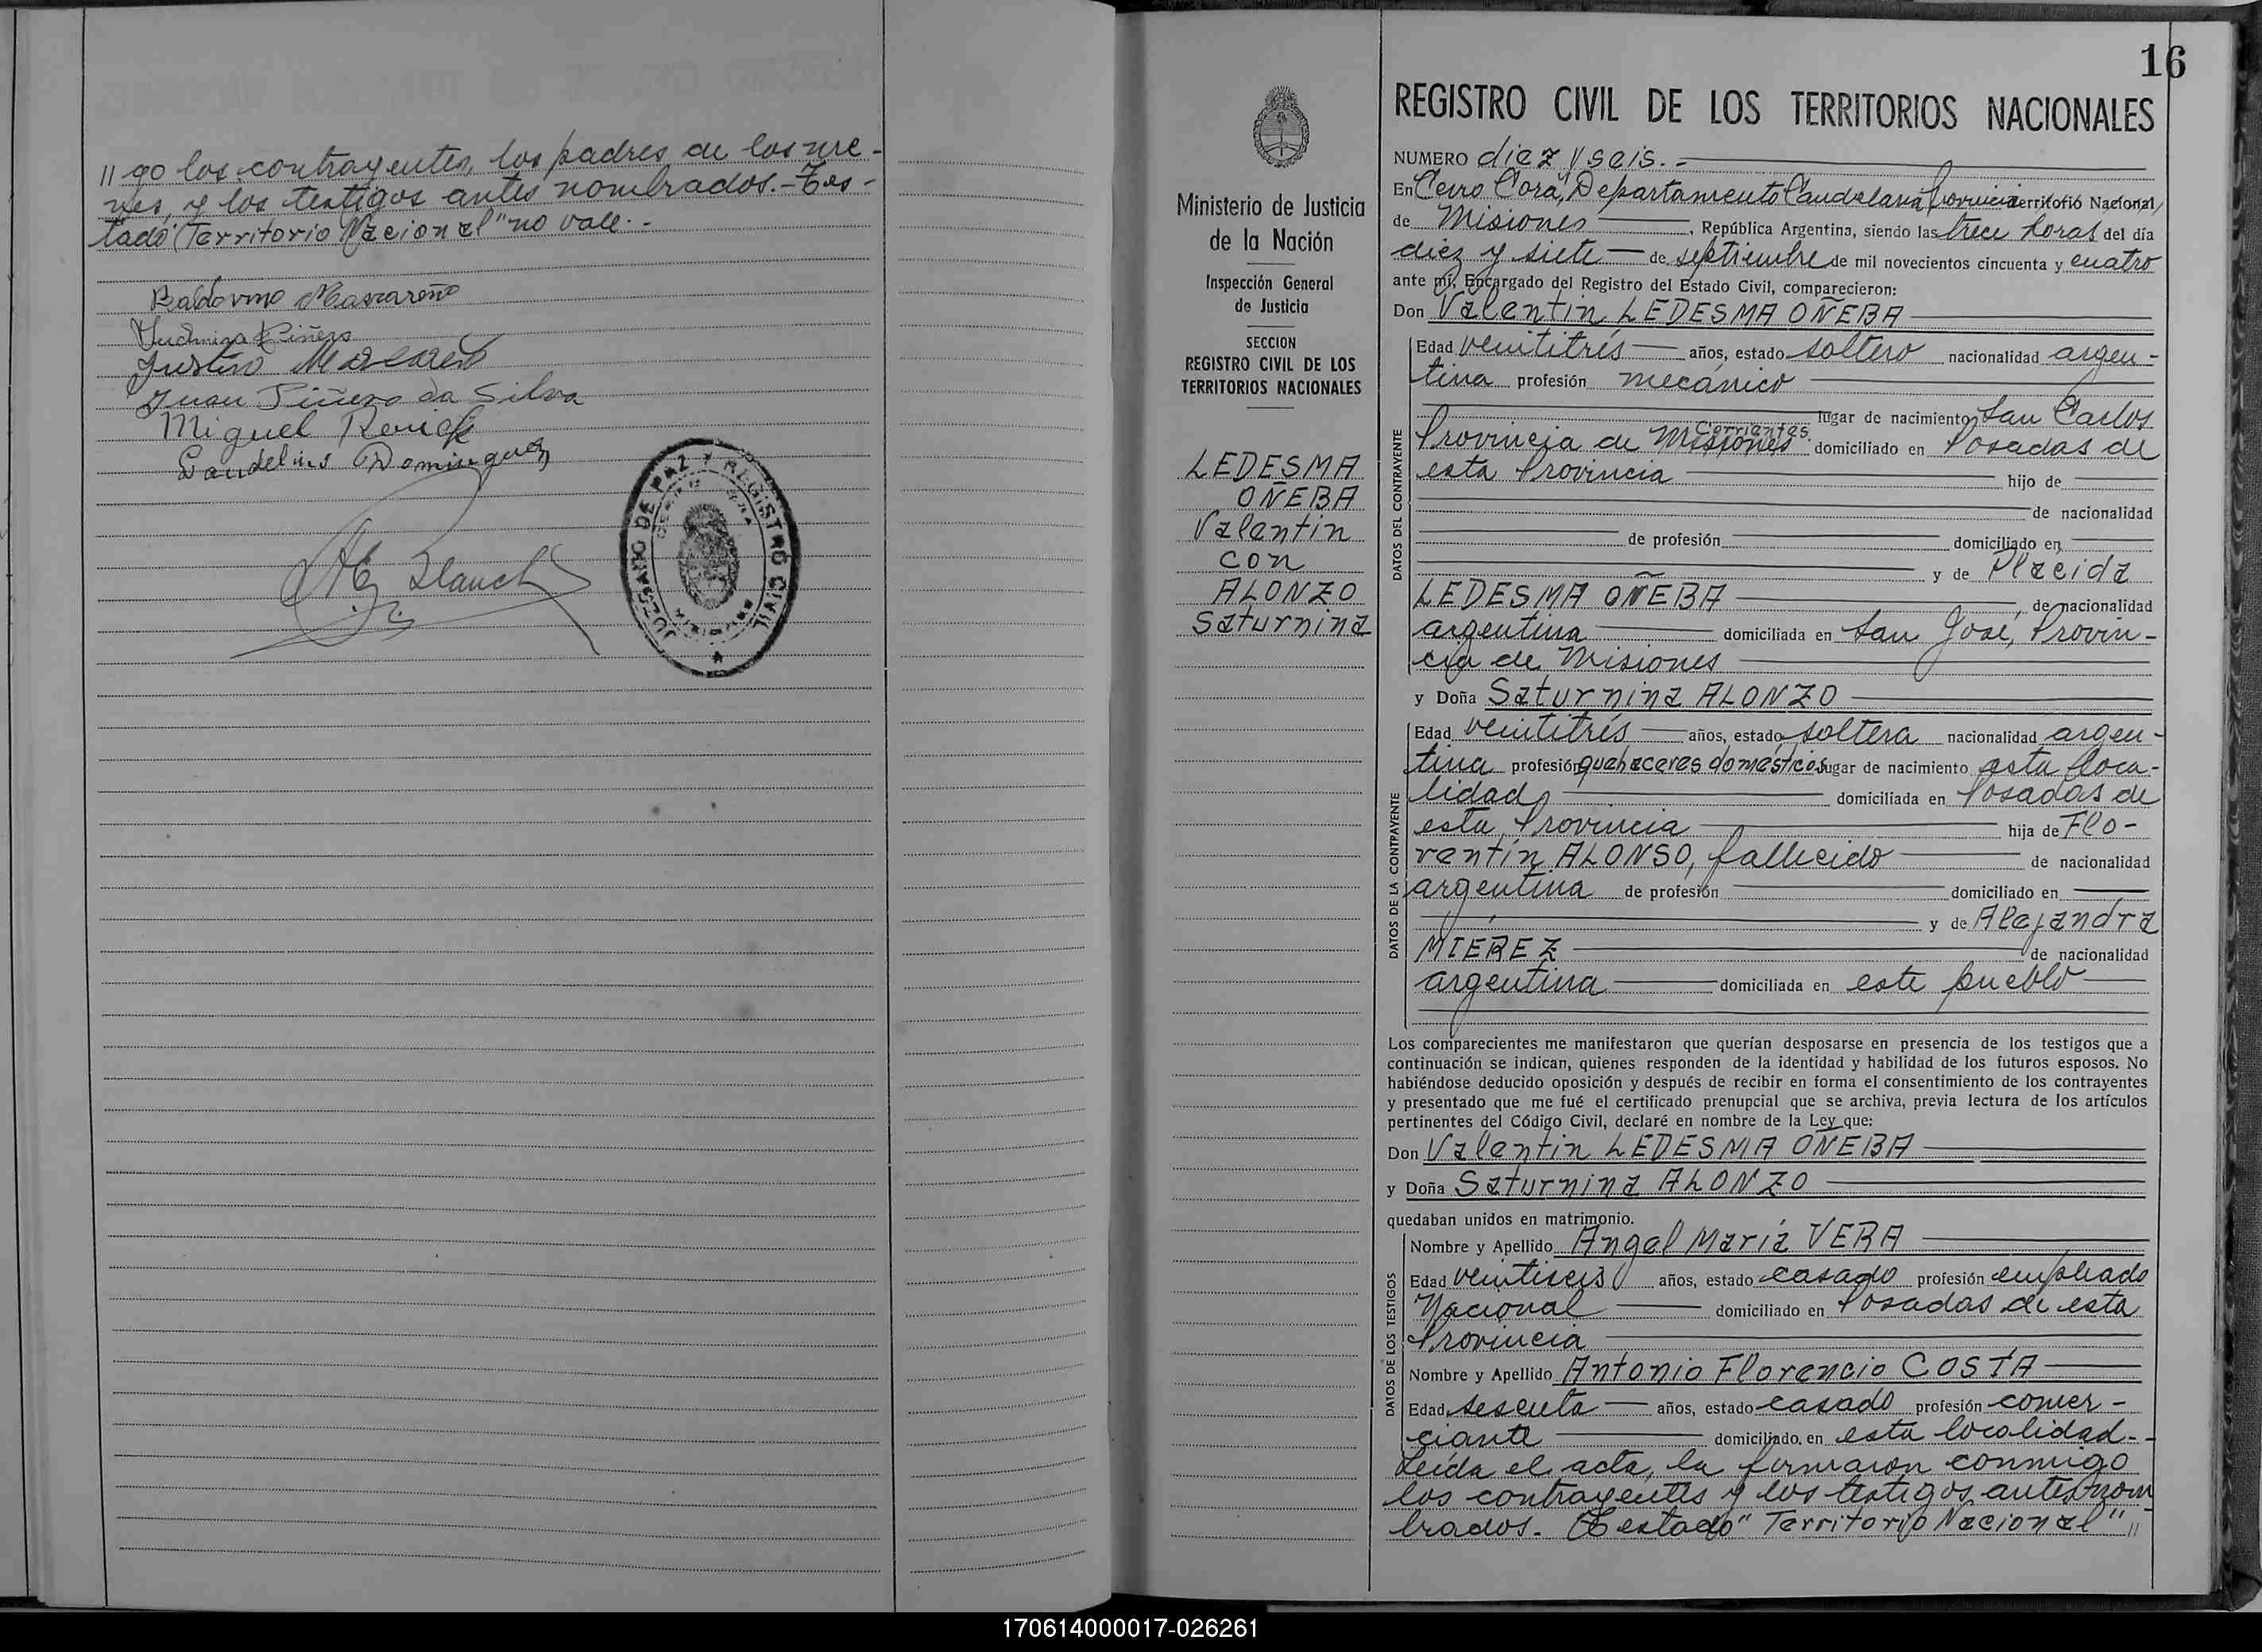 "go los contrayentes, los padres de los me-
nes, y los testigos antes nombrados.- Tes-
tado "Territorio Nacional" no vale.-
Baldovino Mascareño
Juan Piñero da Silva
Miguel
Dominguez
JUZGADO DE PAZ Y REGISTRO CIVIL
16
REGISTRO CIVIL DE LOS TERRITORIOS NACIONALES
Ministerio de Justicia
de la Nación
Inspección General
de Justicia
SECCION
REGISTRO CIVIL DE LOS
TERRITORIOS NACIONALES
LEDESMA
OÑEBA
Valentin
con
ALONZO
Saturnina
NUMERO diez y seis.-
En Cerro Corá, Departamento Candelaria Provincia Territorio Nacional
de Misiones, República Argentina, siendo las trece horas del día
diez y siete de septiembre de mil novecientos cincuenta y cuatro
ante mí, Encargado del Registro del Estado Civil, comparecieron:
Don Valentin LEDESMA OÑEBA
DATOS DEL CONTRAYENTE
Edad veintitrés años, estado soltero nacionalidad argen-
tina profesión mecánico
lugar de nacimiento San Carlos
Corrientes
Provincia de Misiones domiciliado en Posadas de
esta Provincia hijo de
de nacionalidad
de profesión domiciliado en
y de Placida
LEDESMA OÑEBA de nacionalidad
argentina domiciliada en San José, Provin-
cia de Misiones
y Doña Saturnina ALONZO
DATOS DE LA CONTRAYENTE
Edad veintitrés años, estado soltera nacionalidad argen-
tina profesión quehaceres domésticos lugar de nacimiento esta loca-
lidad domiciliada en Posadas de
esta Provincia hija de Flo-
rentín ALONSO, fallecido de nacionalidad
argentina de profesión domiciliado en
y de Alejandra
MIEREZ de nacionalidad
argentina domiciliada en este pueblo
Los comparecientes me manifestaron que querían desposarse en presencia de los testigos que a
continuación se indican, quienes responden de la identidad y habilidad de los futuros esposos. No
habiéndose deducido oposición y después de recibir en forma el consentimiento de los contrayentes
y presentado que me fué el certificado prenupcial que se archiva, previa lectura de los artículos
pertinentes del Código Civil, declaré en nombre de la Ley que:
Don Valentin LEDESMA OÑEBA
y Doña Saturnina ALONZO
quedaban unidos en matrimonio.
DATOS DE LOS TESTIGOS
Nombre y Apellido Angel María VERA
Edad veintiseis años, estado casado profesión empleado
Nacional domiciliado en Posadas de esta
Provincia
Nombre y Apellido Antonio Florencio COSTA
Edad sesenta años, estado casado profesión comer-
ciante domiciliado en esta localidad.-
Leída el acta, la firmaron conmigo
los contrayentes y los testigos antes nom
brados. Testado "Territorio Nacional" "
170614000017-026261